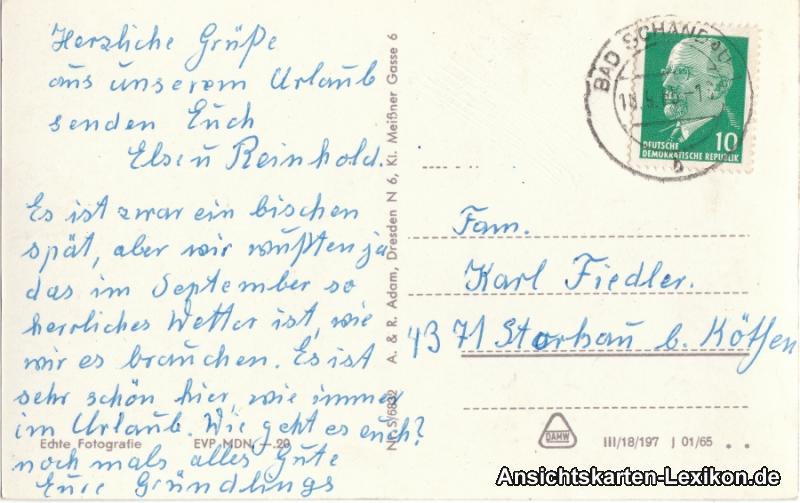 Herzliche Grüße
aus unserem Urlaub
senden Euch
Else u Reinhold.
Es ist zwar ein bischen
spät, aber wir wußten ja
das im September so
herrliches Wetter ist, wie
wir es brauchen. Es ist
sehr schön hier, wie immer
im Urlaub. Wie geht es euch?
noch mals alles Gute
Eure Gründlings
Echte Fotografie EVP MDN —.20
Nr. S/6832 A. & R. Adam, Dresden N 6, Kl. Meißner Gasse 6
BAD SCHANDAU
b
10
DEUTSCHE
DEMOKRATISCHE REPUBLIK
Fam.
Karl Fiedler.
4371 b. Köthen
DAMW
III/18/197 J 01/65
Ansichtskarten-Lexikon.de